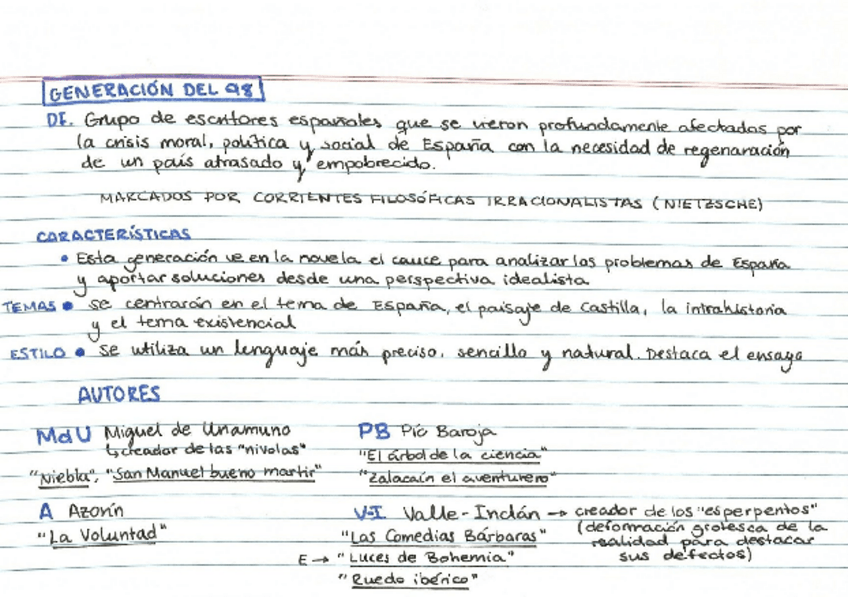 GENERACIÓN DEL 98
DF. Grupo de escritores españoles que se vieron profundamente afectados por
la crisis moral, política y social de España con la necesidad de regenaración
de un país atrasado y empobrecido.
MARCADOS POR CORRIENTES FILOSÓFICAS IRRACIONALISTAS (NIETZSCHE)
CARACTERÍSTICAS
• Esta generación ve en la novela el cauce para analizar los problemas de España
y aportar soluciones desde una perspectiva idealista
TEMAS • se centrarán en el tema de España, el paisaje de Castilla, la intrahistoria
y el tema existencial
ESTILO • se utiliza un lenguaje más preciso, sencillo y natural. Destaca el ensayo
AUTORES
MdU Miguel de Unamuno
↳creador de las "nivolas"
"Niebla", "San Manuel bueno martir"
PB Pío Baroja
"El árbol de la ciencia"
"Zalacaín el aventurero"
A Azorín
"La Voluntad"
V-I Valle-Inclán → creador de los "esperpentos"
(deformación grotesca de la
realidad para destacar
sus defectos)
"Las Comedias Bárbaras"
E → "Luces de Bohemia"
"Ruedo ibérico"